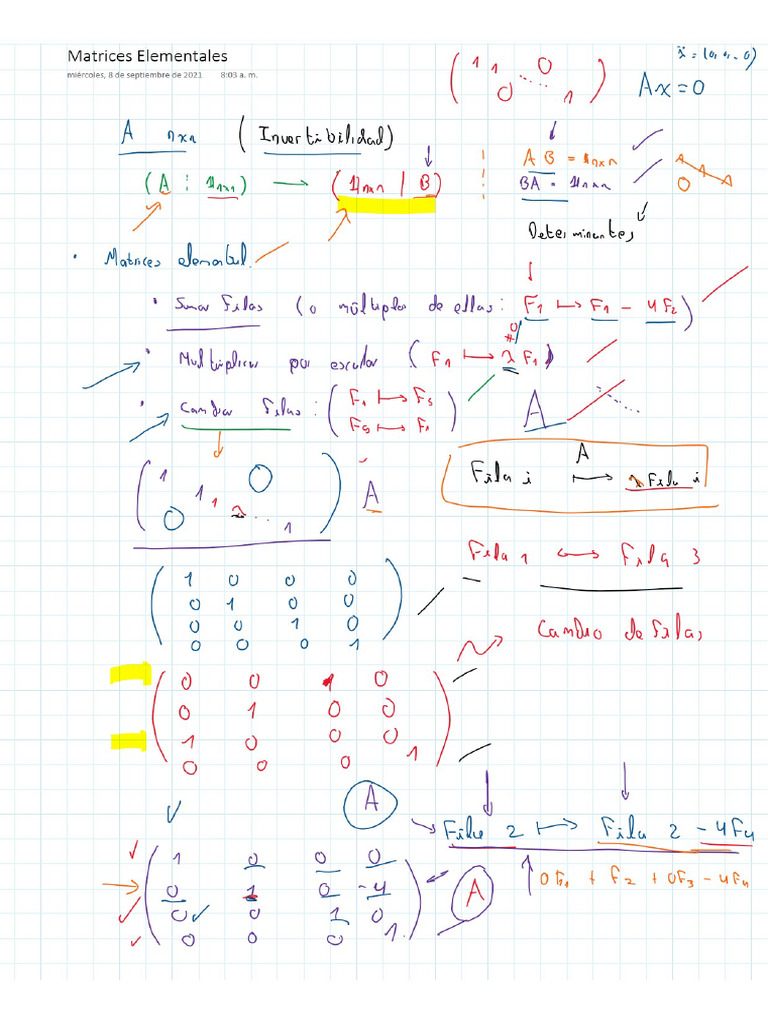 Matrices Elementales
miércoles, 8 de septiembre de 2021 8:03 a. m.
x = (0, 0.. 0)
( 1 1 0 0 ... 1 )
Ax = 0
A nxn ( Invertibilidad)
(A ⋮ 1nxn) → (1nxn | B)
AB = 1nxn
BA = 1nxn
Determinantes
• Matrices elemental.
• Sumar Filas (o múltiplos de ellas: F1 ↦ F1 - 4F2)
• Multiplicar por escalar (F1 ↦ λF1)
≠0
• Cambiar Filas: (F1 ↦ F3
F3 ↦ F1)
A
( 1 1 1 λ ... 1 0 0 ) A
Fila i ↦ λ Fila i
A
Fila 1 ↔ Fila 3
1 0 0 0
0 1 0 0
0 0 1 0
0 0 0 1
Cambio de Filas
0 0 1 0
0 1 0 0
1 0 0 0
0 0 0 1
A
Fila 2 ↦ Fila 2 - 4F4
1 0 0 0
0 1 0 -4
0 0 1 0
0 0 0 1
A
0F1 + F2 + 0F3 - 4F4